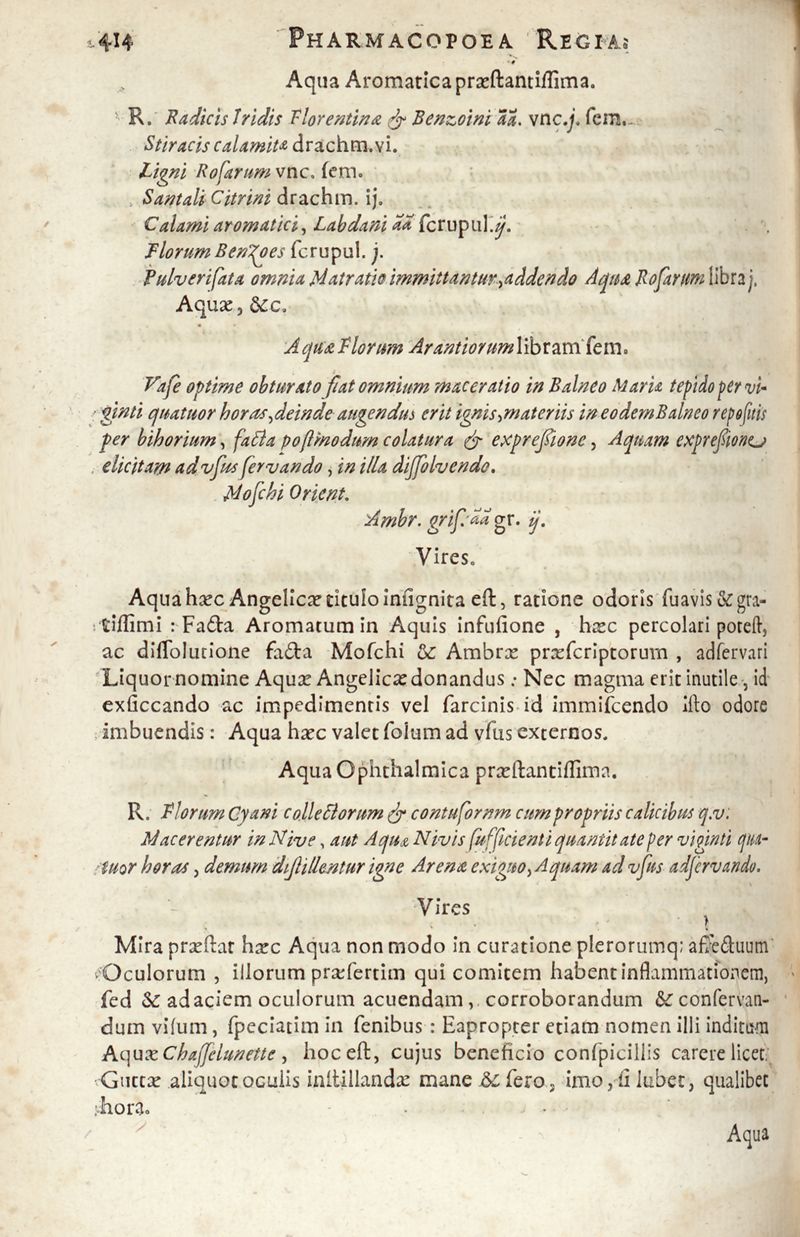 414 PHARMACOPOEA REGIA.
Aqua Aromatica præſtantiſſima.
R. Radicis Iridis Florentinæ & Benzoini āā. vnc.j. ſem.
Stiracis calamitæ drachm.vi.
Ligni Roſarum vnc. ſem.
Santali Citrini drachm. ij.
Calami aromatici, Labdani āā ſcrupul.ij.
Florum Benzoes ſcrupul. j.
Pulveriſata omnia Matratio immittantur, addendo Aquæ Roſarum libra j.
Aquæ, &c.
Aquæ Florum Arantiorum libram ſem.
Vaſe optime obturato fiat omnium maceratio in Balneo Mariæ tepido per vi-
ginti quatuor horas, deinde augendus erit ignis, materiis in eodem Balneo repoſitis
per bihorium, facta poſtmodum colatura & expreſſione, Aquam expreſſione
elicitam ad vſus ſervando, in illa diſſolvendo.
Moſchi Orient.
Ambr. griſ. āā gr. ij.
Vires.
Aqua hæc Angelicæ titulo inſignita eſt, ratione odoris ſuavis & gra-
tiſſimi : Facta Aromatum in Aquis infuſione , hæc percolari poteſt,
ac diſſolutione facta Moſchi & Ambræ præſcriptorum , adſervari
Liquor nomine Aquæ Angelicæ donandus : Nec magma erit inutile, id
exſiccando ac impedimentis vel ſarcinis id immiſcendo iſto odore
imbuendis : Aqua hæc valet ſolum ad vſus externos.
Aqua Ophthalmica præſtantiſſima.
R. Florum Cyani collectorum & contuſornm cum propriis calicibus q.v.
Macerentur in Nive, aut Aqua Nivis ſufficienti quantitate per viginti qua-
tuor horas, demum diſtillentur igne Arenæ exiguo, Aquam ad vſus adſervando.
Vires
Mira præſtat hæc Aqua non modo in curatione plerorumq; affectuum
Oculorum , illorum præſertim qui comitem habent inflammationem,
ſed & ad aciem oculorum acuendam, corroborandum & conſervan-
dum viſum, ſpeciatim in ſenibus : Eapropter etiam nomen illi inditum
Aquæ Chaſſelunette, hoc eſt, cujus beneficio conſpicillis carere licet.
Guttæ aliquot oculis inſtillandæ mane & ſero, imo, ſi lubet, qualibet
hora.
Aqua